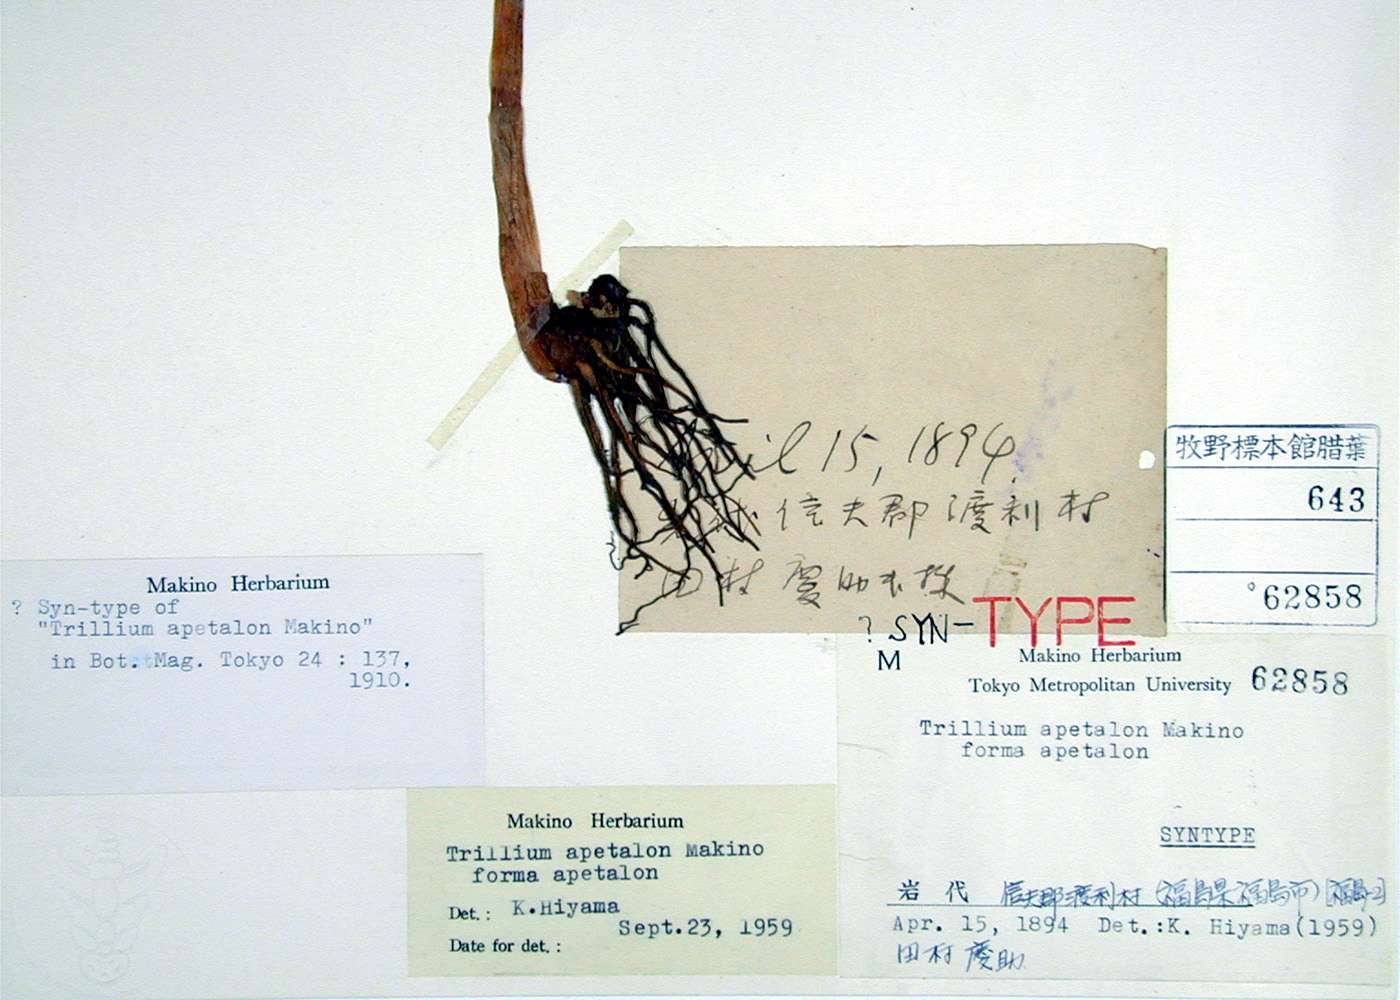 15, 1894.
信夫郡渡利村
田村慶助氏採
牧野標本館腊葉
643
62858
? SYN-TYPE
M
Makino Herbarium
? Syn-type of
"Trillium apetalon Makino"
in Bot. Mag. Tokyo 24 : 137,
1910.
Makino Herbarium
Tokyo Metropolitan University 62858
Trillium apetalon Makino
forma apetalon
SYNTYPE
岩代 信夫郡渡利村(福島県福島市)[福島-2]
Apr. 15, 1894 Det.:K. Hiyama(1959)
田村慶助
Makino Herbarium
Trillium apetalon Makino
forma apetalon
Det.: K.Hiyama
Sept.23, 1959
Date for det. :